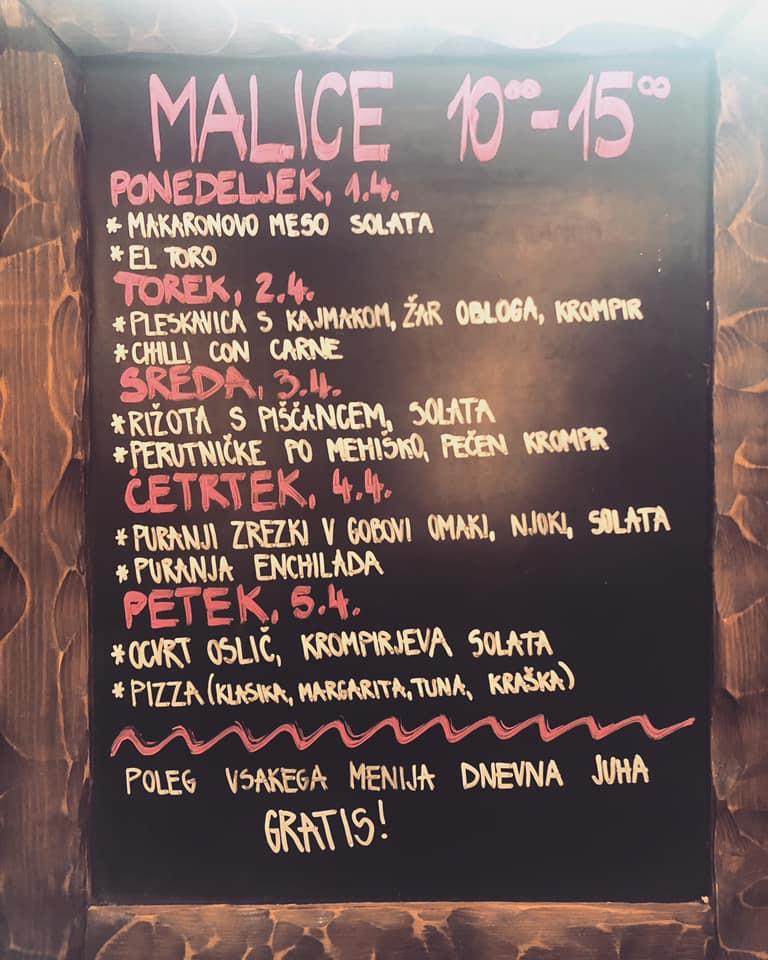 MALICE 10⁰⁰-15⁰⁰
PONEDELJEK, 1.4.
* MAKARONOVO MESO SOLATA
* EL TORO
TOREK, 2.4.
* PLESKAVICA S KAJMAKOM, ŽAR OBLOGA, KROMPIR
* CHILLI CON CARNE
SREDA, 3.4.
* RIŽOTA S PIŠČANCEM, SOLATA
* PERUTNIČKE PO MEHIŠKO, PEČEN KROMPIR
ČETRTEK, 4.4.
* PURANJI ZREZKI V GOBOVI OMAKI, NJOKI, SOLATA
* PURANJA ENCHILADA
PETEK, 5.4.
* OCVRT OSLIČ, KROMPIRJEVA SOLATA
* PIZZA (KLASIKA, MARGARITA, TUNA, KRAŠKA)
POLEG VSAKEGA MENIJA DNEVNA JUHA
GRATIS!